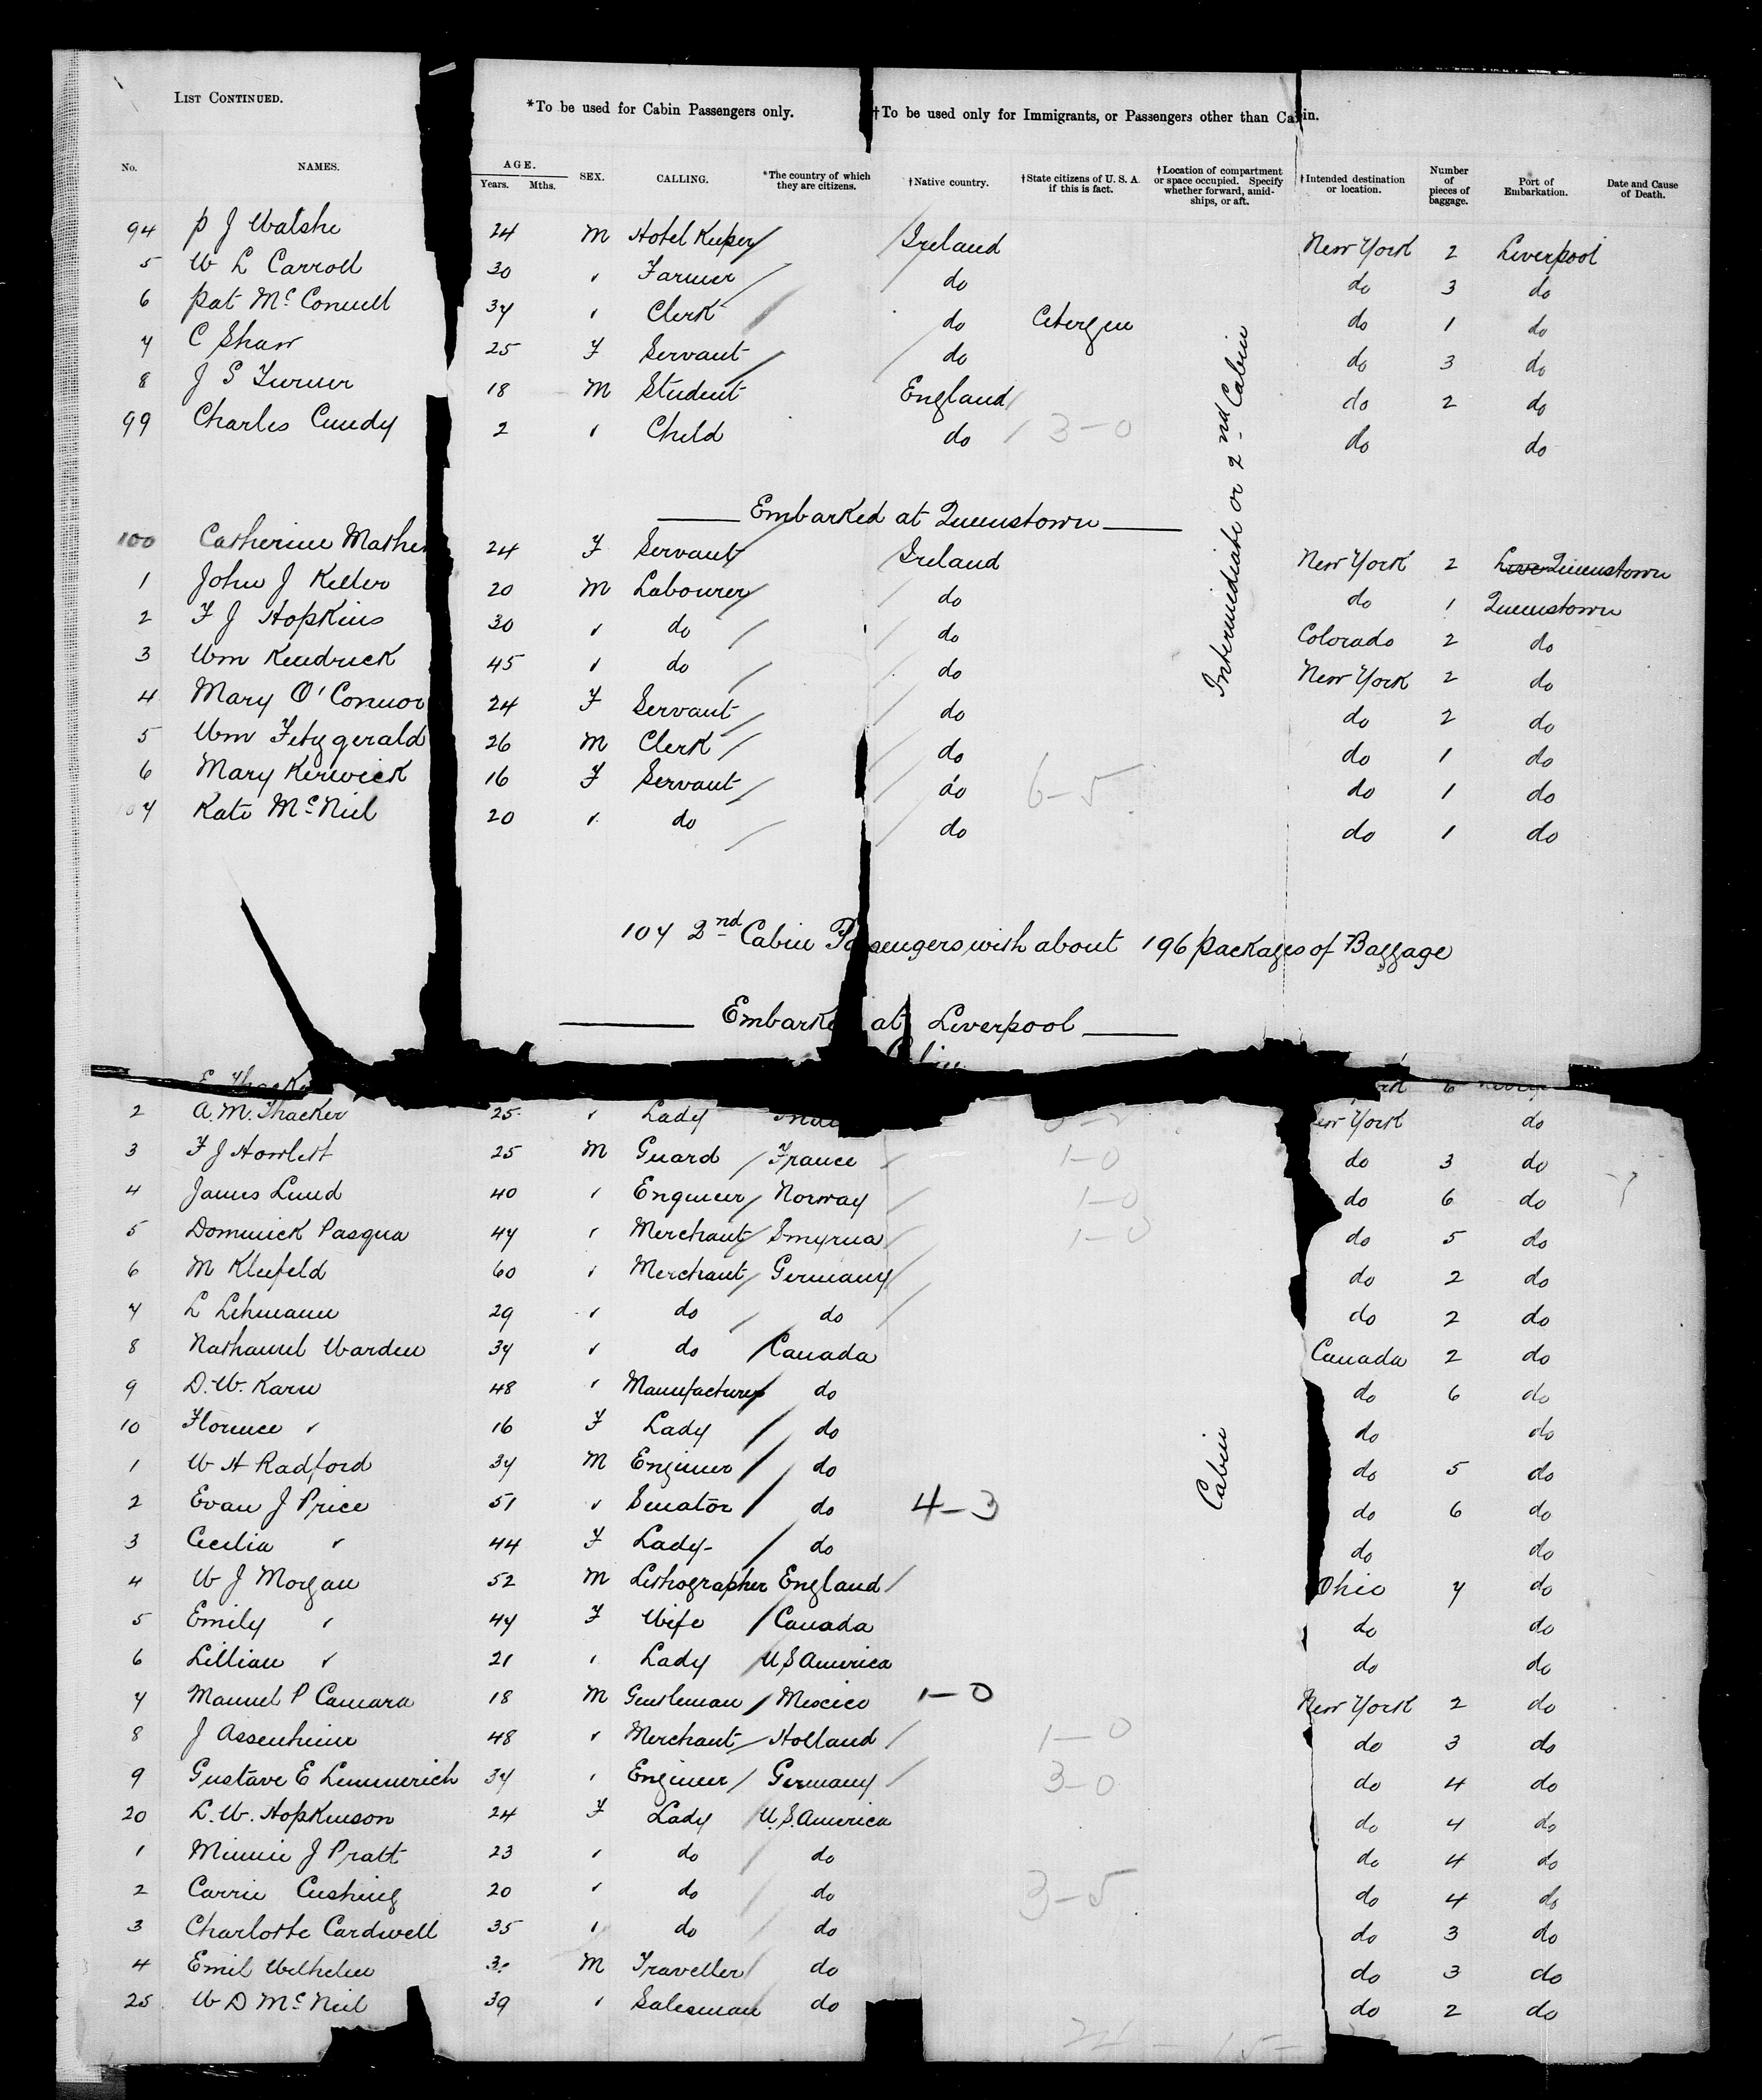 List Continued.
*To be used for Cabin Passengers only. †To be used only for Immigrants, or Passengers other than Cabin.
No. NAMES. AGE. Years. Mths. SEX. CALLING. *The country of which they are citizens. †Native country. †State citizens of U. S. A. if this is fact. †Location of compartment or space occupied. Specify whether forward, amidships, or aft. †Intended destination or location. Number of pieces of baggage. Port of Embarkation. Date and Cause of Death.
94 P J Walshe 24 M Hotel Keeper Ireland New York 2 Liverpool
5 W L Carroll 30 " Farmer do do 3 do
6 Pat McConnell 37 " Clerk do Citergen do 1 do
7 C Shaw 25 F Servant do do 3 do
8 J S Turner 18 M Student England do 2 do
99 Charles Cundy 2 " Child do 3-0 do do
Intermediate or 2nd Cabin
Embarked at Queenstown
100 Catherine Mather 24 F Servant Ireland New York 2 Liver Queenstown
1 John J Keller 20 M Labourer do do 1 Queenstown
2 F J Hopkins 30 " do do Colorado 2 do
3 Wm Kendrick 45 " do do New York 2 do
4 Mary O'Connor 24 F Servant do do 2 do
5 Wm Fitzgerald 26 M Clerk do do 1 do
6 Mary Kerwick 16 F Servant do 6-5 do 1 do
107 Kate McNeil 20 " do do do 1 do
107 2nd Cabin Passengers with about 196 packages of Baggage
Embarked at Liverpool
Cabin
E Thacker 6
2 A. M. Thacker 25 " Lady New York do
3 F J Howlett 25 M Guard France 1-0 do 3 do
4 James Lund 40 " Engineer Norway 1-0 do 6 do
5 Dominick Pasqua 47 " Merchant Smyrna 1-0 do 5 do
6 M Kleefeld 60 " Merchant Germany do 2 do
7 L Lehmann 29 " do do do 2 do
8 Nathaniel Warden 37 " do Canada Canada 2 do
9 D. W. Karn 48 " Manufacturer do do 6 do
10 Florence " 16 F Lady do do do
1 W H Radford 37 M Engineer do do 5 do
2 Evan J Price 51 " Senator do 4-3 do 6 do
3 Cecilia " 44 F Lady do do do
4 W J Morgan 52 M Lithographer England Ohio 7 do
5 Emily " 47 F Wife Canada do do
6 Lillian " 21 " Lady U S America do do
7 Manuel P Camara 18 M Gentleman Mexico 1-0 New York 2 do
8 J Assenheim 48 " Merchant Holland 1-0 do 3 do
9 Gustave E Lemmerich 37 " Engineer Germany 3-0 do 4 do
20 L. W. Hopkinson 24 F Lady U. S. America do 4 do
1 Minnie J Pratt 23 " do do do 4 do
2 Carrie Cushing 20 " do do 3-5 do 4 do
3 Charlotte Cardwell 35 " do do do 3 do
4 Emil Wilhelm M Traveller do do 3 do
25 W D McNeil 39 " Salesman do do 2 do
Cabin